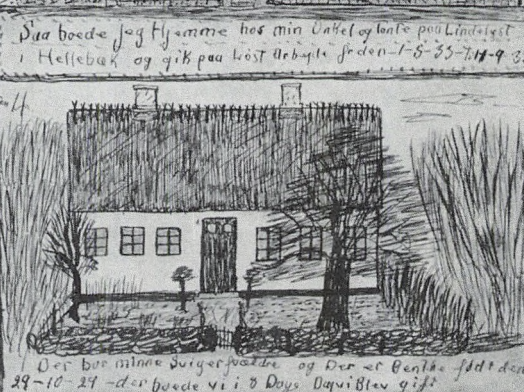 Saa boede Jeg Hjemme hos min Onkel og Tante paa Lindelyst
i Hellebæk og gik paa Löst Arbejde fra den 1-5-33-T.
No 4
Der bor minne Svigerforældre og Der er Benthe födt den
29-10-29 - der boede vi i 8 Days Da vi Blev gift